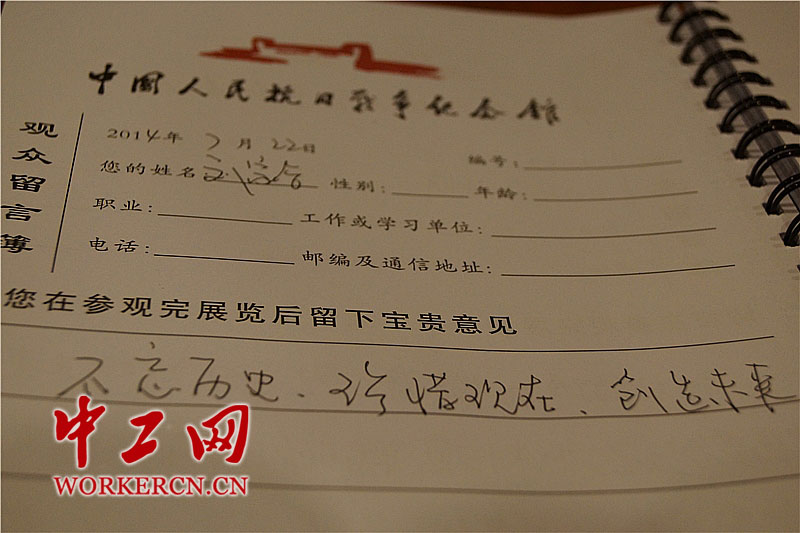 中国人民抗日战争纪念馆
观众留言簿
2014年 7月 22日
编号：
您的姓名 性别： 年龄：
职业： 工作或学习单位：
电话： 邮编及通信地址：
您在参观完展览后留下宝贵意见
不忘历史、珍惜现在、创造未来
中工网
WORKERCN.CN